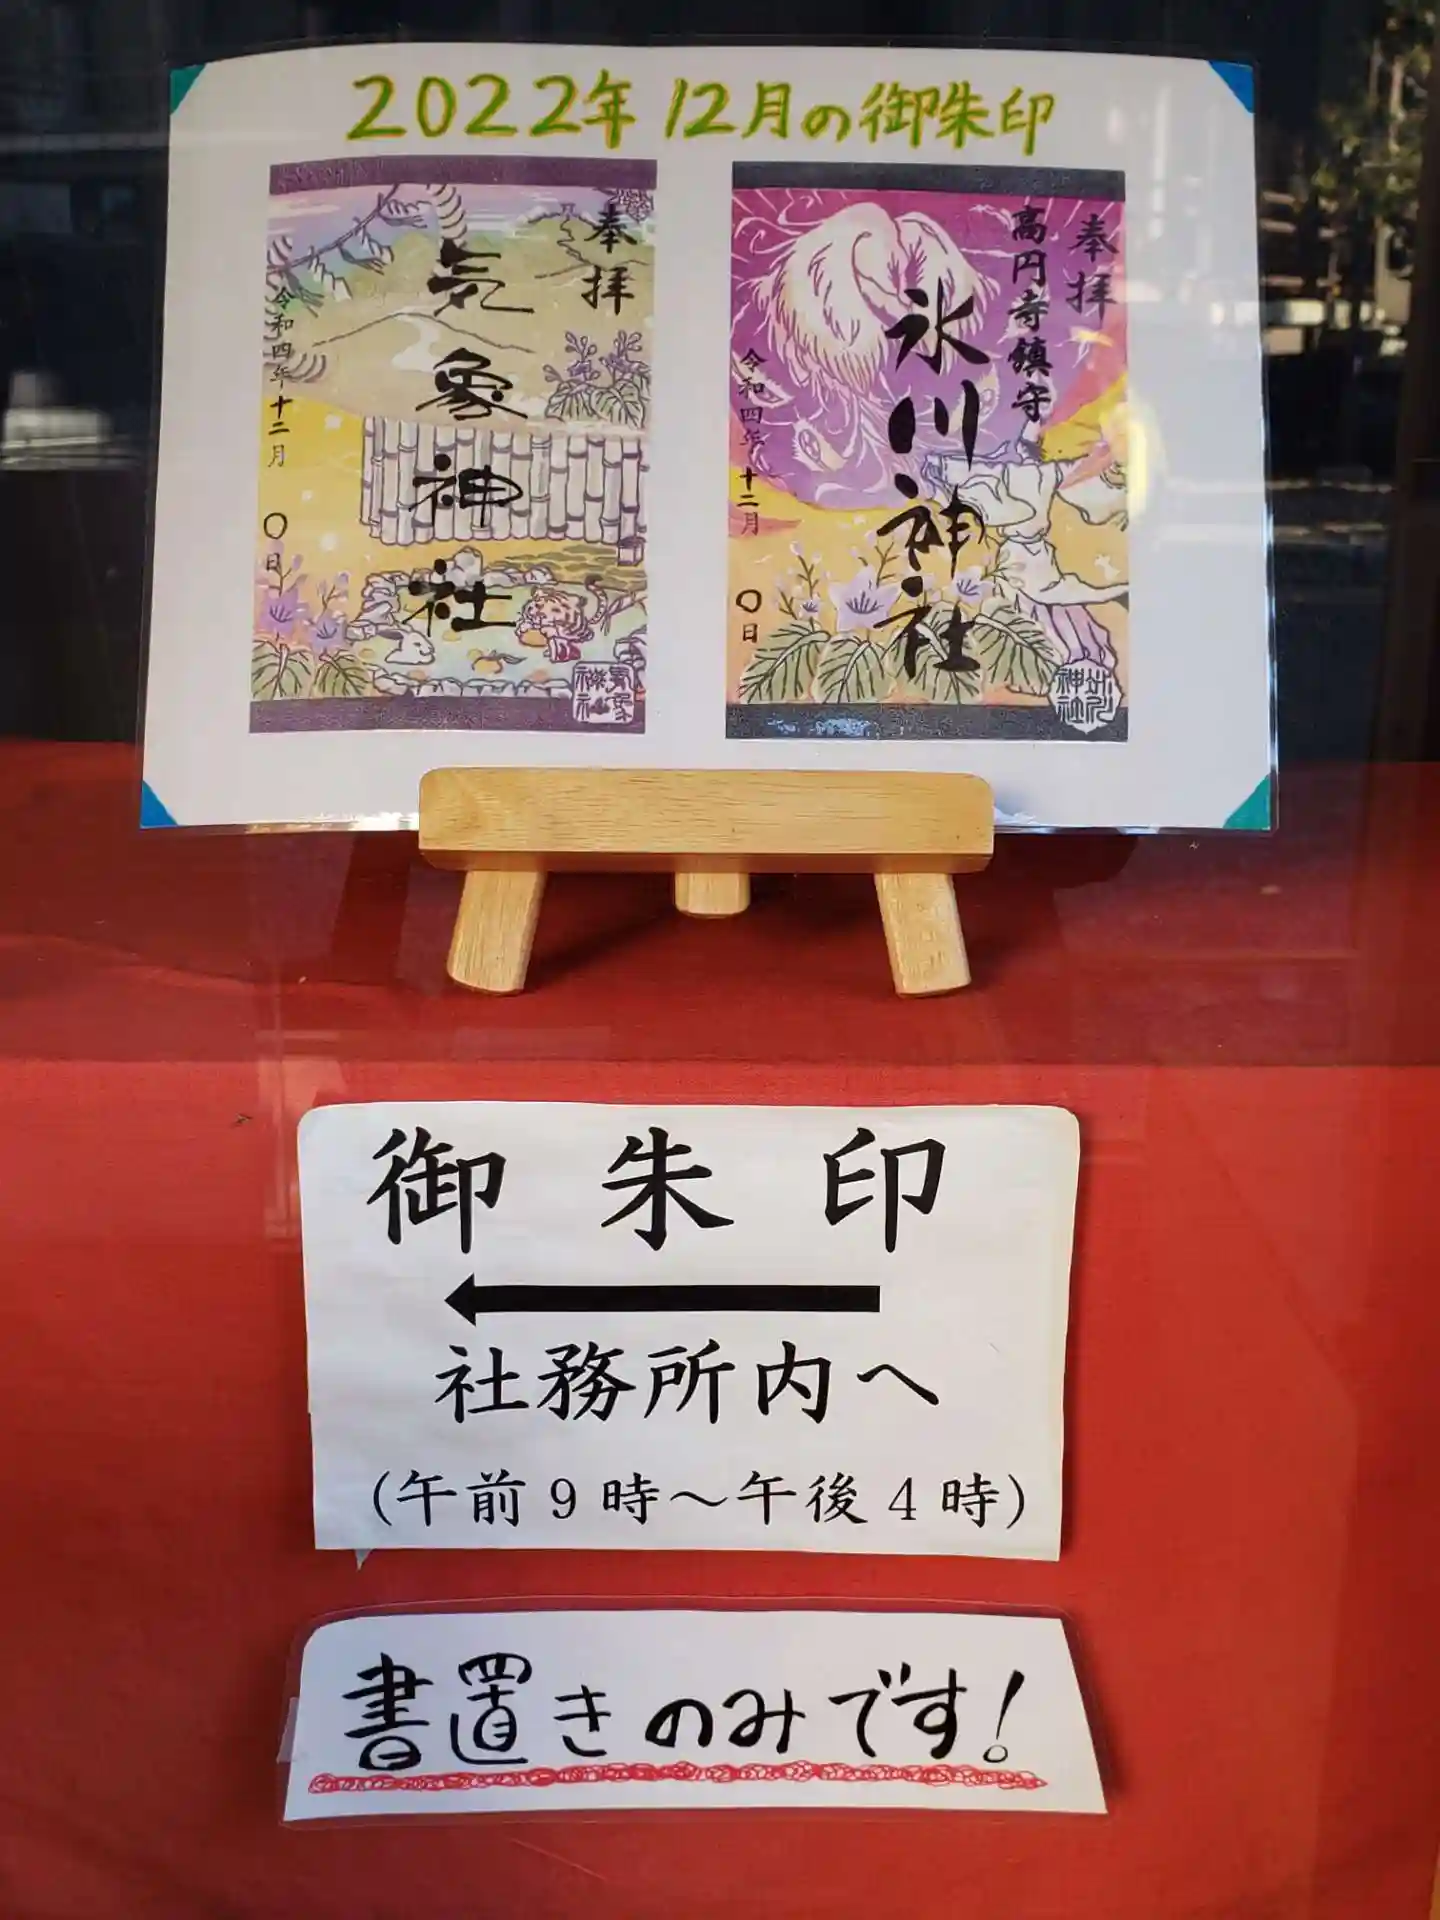 2022年 12月の御朱印
奉拝
気象神社
令和四年十二月 〇日
奉拝
高円寺鎮守
氷川神社
令和四年十二月 〇日
御朱印
社務所内へ
(午前9時～午後4時)
書置きのみです!